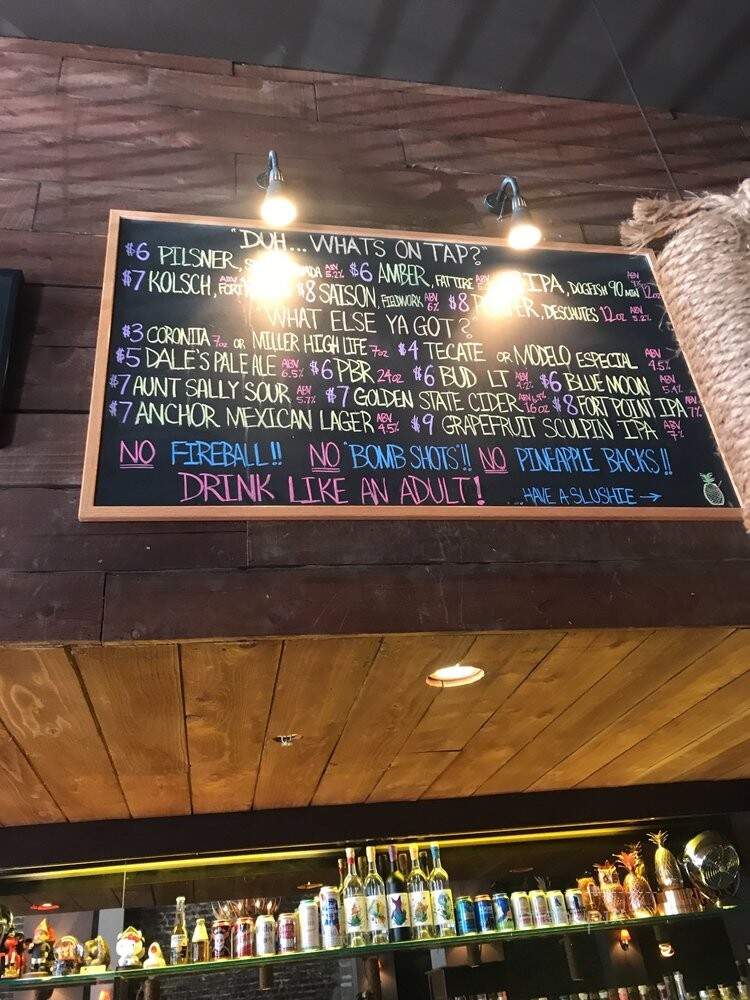 "DUH... WHATS ON TAP?"
$6 PILSNER, ABV 5.2% $6 AMBER, FAT TIRE IPA, DOGFISH 90 MIN 12oz
$7 KOLSCH, FORT $8 SAISON, FIELDWORK ABV 6% $8 DESCHUTES 12oz ABV 5.2%
"WHAT ELSE YA GOT?"
$3 CORONITA 7oz OR MILLER HIGH LIFE 7oz $4 TECATE OR MODELO ESPECIAL ABV 4.5%
$5 DALE'S PALE ALE ABV 6.5% $6 PBR 24oz $6 BUD LT ABV 4.2% $6 BLUE MOON ABV 5.4%
$7 AUNT SALLY SOUR ABV 5.7% $7 GOLDEN STATE CIDER 16oz $8 FORT POINT IPA ABV 7%
$7 ANCHOR MEXICAN LAGER ABV 4.5% $9 GRAPEFRUIT SCULPIN IPA ABV 7%
NO FIREBALL!! NO "BOMB SHOTS"!! NO PINEAPPLE BACKS!!
DRINK LIKE AN ADULT! ...HAVE A SLUSHIE →